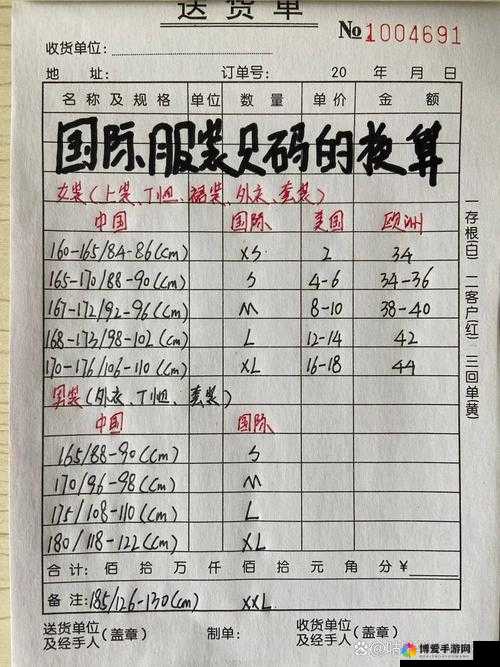 送货单
№1004691
收货单位:
地 址: 订单号: 20 年 月 日
名称及规格 单位 数量 单价 金额
国际服装尺码的换算
女装(上装、T恤、裙装、外衣、套装)
中国 国际 美国 欧洲
160-165/84-86(cm) XS 2 34
165-170/88-90(cm) S 4-6 34-36
167-172/92-96(cm) M 8-10 38-40
168-173/98-102(cm) L 12-14 42
170-176/106-110(cm) XL 16-18 44
男装(外衣、T恤、套装)
中国 国际
165/88-90(cm) S
170/96-98(cm) M
175/108-110(cm) L
180/118-122(cm) XL
合计: 佰 拾 万 仟 佰 拾 元 角 分 ¥
备注: 185/126-130(cm) XXL
送货单位及经手人(盖章) 制单: 收货单位及经手人
一存根(白) 二客户(红) 三回单(黄)
博爱手游网